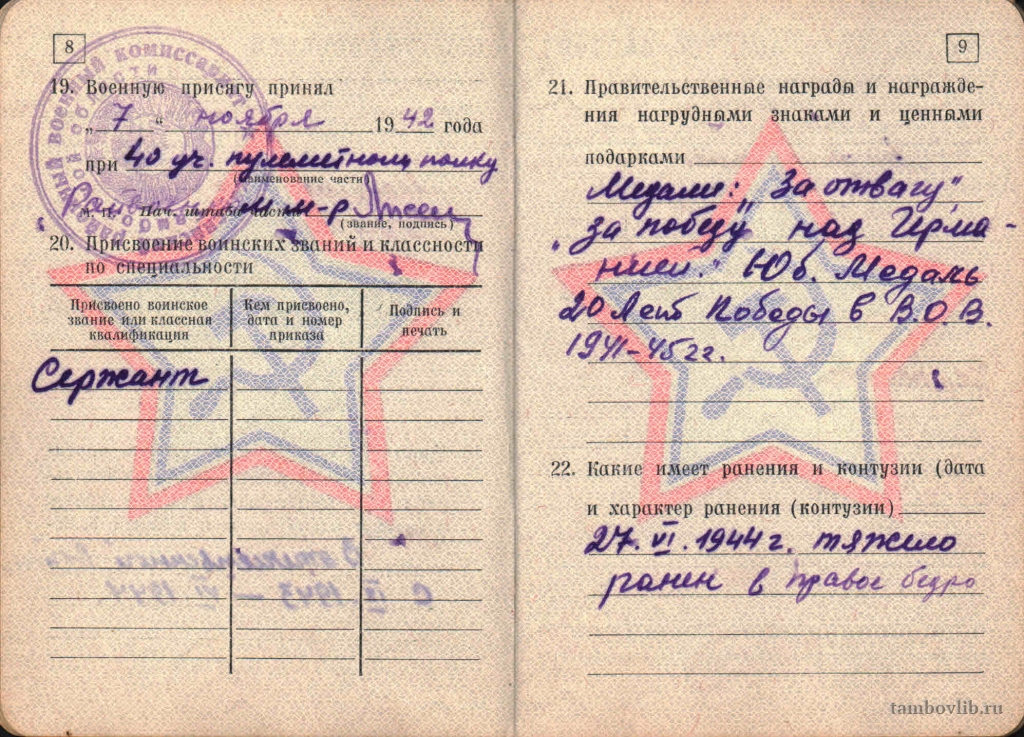 8
19. Военную присягу принял
„ 7 “ ноября 1942 года
при 40 уч. пулеметном полку
(наименование части)
М. П. Нач. штаба части м-р
(звание, подпись)
20. Присвоение воинских званий и классности
по специальности
Присвоено воинское звание или классная квалификация
Кем присвоено, дата и номер приказа
Подпись и печать
Сержант
9
21. Правительственные награды и награжде-
ния нагрудными знаками и ценными
подарками
Медали: „За отвагу“,
„за победу“ над Герма-
нией. Юб. Медаль
20 Лет Победы в В.О.В.
1941-45гг.
22. Какие имеет ранения и контузии (дата
и характер ранения (контузии)
27. VI. 1944 г. тяжело
ранен в правое бедро
tambovlib.ru